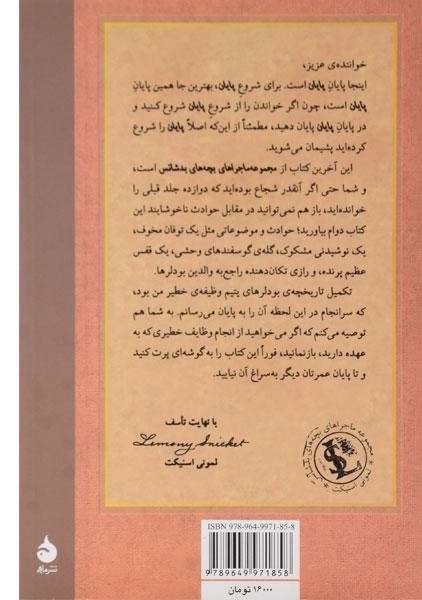 خواننده‌ی عزیز،
اینجا پایانِ پایان است. برای شروعِ پایان، بهترین جا همین پایانِ
پایان است، چون اگر خواندن را از شروعِ پایان شروع کنید و
در پایانِ پایان پایان دهید، مطمئناً از این‌که اصلاً پایان را شروع
کرده‌اید پشیمان می‌شوید.
این آخرین کتاب از مجموعه ماجراهای بچه‌های بدشانس است،
و شما حتی اگر آنقدر شجاع بوده‌اید که دوازده جلد قبلی را
خوانده‌اید، باز هم نمی‌توانید در مقابل حوادث ناخوشایند این
کتاب دوام بیاورید؛ حوادث و موضوعاتی مثل یک توفان مخوف،
یک نوشیدنی مشکوک، گله‌ی گوسفندهای وحشی، یک قفس
عظیم پرنده، و رازی تکان‌دهنده راجع‌به والدین بودلرها.
تکمیل تاریخچه‌ی بودلرهای یتیم وظیفه‌ی خطیر من بود،
که سرانجام در این لحظه آن را به پایان می‌رسانم. به شما هم
توصیه می‌کنم که اگر می‌خواهید از انجام وظایف خطیری که به
عهده دارید، بازنمانید، فوراً این کتاب را به گوشه‌ای پرت کنید
و تا پایان عمرتان دیگر به‌سراغ آن نیایید.
با نهایت تأسف
Lemony Snicket
لمونی اسنیکت
مجموعه ماجراهای بچه‌های بدشانس
لمونی اسنیکت
ISBN 978-964-9971-85-8
9 789649 971858
۱۶۰۰۰ تومان
نشر ماهی